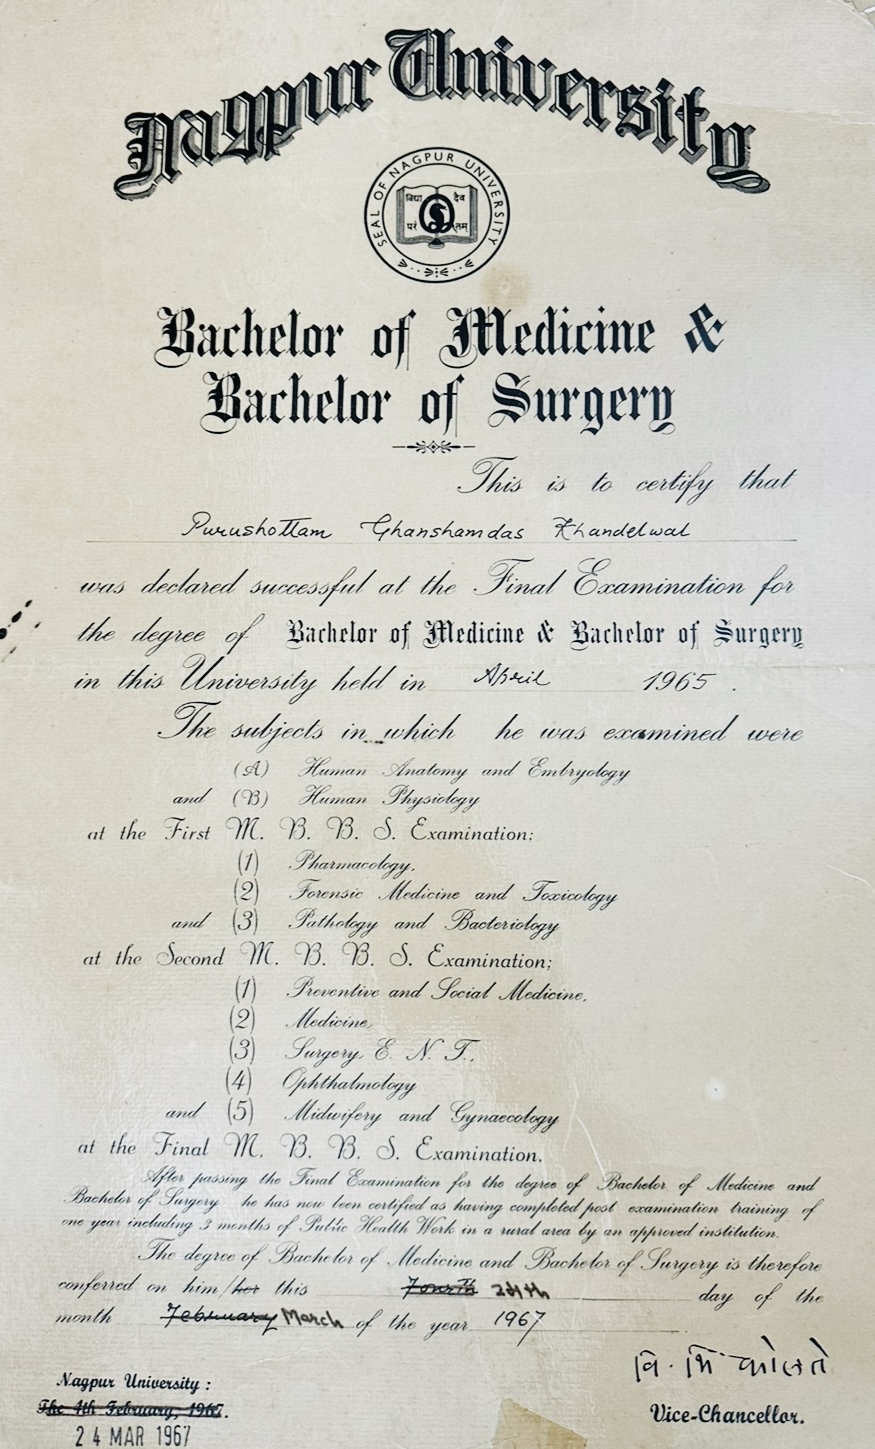 Nagpur University
SEAL OF NAGPUR UNIVERSITY
विद्या देव
परं तम्
Bachelor of Medicine &
Bachelor of Surgery
This is to certify that
Purushottam Ghanshamdas Khandelwal
was declared successful at the Final Examination for
the degree of Bachelor of Medicine & Bachelor of Surgery
in this University held in April 1965.
The subjects in which he was examined were
(A) Human Anatomy and Embryology
and (B) Human Physiology
at the First M. B. B. S. Examination:
(1) Pharmacology,
(2) Forensic Medicine and Toxicology
and (3) Pathology and Bacteriology
at the Second M. B. B. S. Examination;
(1) Preventive and Social Medicine,
(2) Medicine,
(3) Surgery, E. N. T.,
(4) Ophthalmology
and (5) Midwifery and Gynaecology
at the Final M. B. B. S. Examination.
After passing the Final Examination for the degree of Bachelor of Medicine and
Bachelor of Surgery he has now been certified as having completed post examination training of
one year including 3 months of Public Health Work in a rural area by an approved institution.
The degree of Bachelor of Medicine and Bachelor of Surgery is therefore
conferred on him/her this Fourth 24th day of the
month February March of the year 1967
वि. भि. कोलते
Nagpur University:
The 4th February, 1967.
Vice-Chancellor.
24 MAR 1967